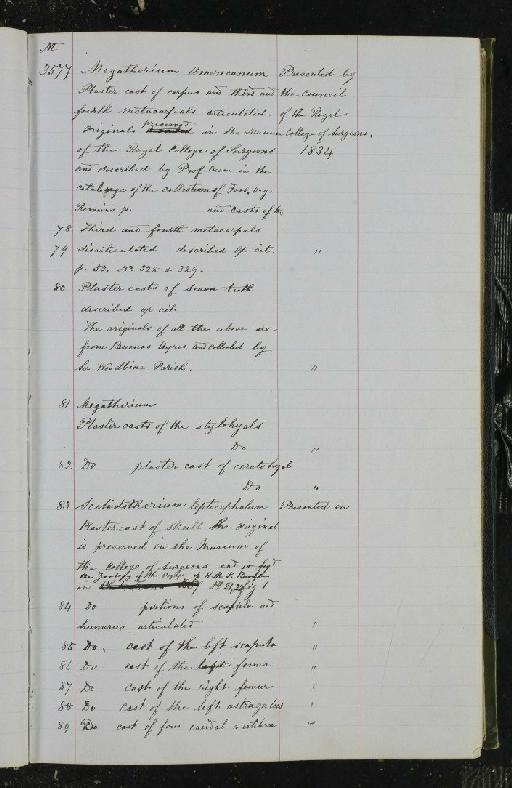 M
3577 Megatherium Americanum Presented by
Plaster cast of carpus and third and the Council
fourth metacarpals articulated. of the Royal
Originals preserved in the museum College of Surgeons.
of the Royal College of Surgeons 1834
and described by Prof. Owen in the
catalogue of the collection of Foss. Org.
Remains p. and Casts of the
78 third and fourth metacarpals
79 disarticulated described op. cit. "
p. 52. No 328 & 329.
80 Plaster casts of seven teeth
described op. cit.
The originals of all the above are
from Buenos Ayres and collected by
Sir Woodbine Parish. "
81 Megatherium
Plaster casts of the stylohyals
Do "
82. Do plaster cast of ceratohyal
Do "
83 Scelidotherium leptocephalum Presented in
Plaster cast of skull the original
is preserved in the Museum of
the College of Surgeons and is figd
in Zoology of the Voy. of H.M.S. Beagle
84 Do portions of scapula and
humerus articulated "
85 Do. cast of the left scapula "
86 Do cast of the left femur "
87 Do cast of the right femur "
88 Do cast of the left astragalus "
89 Do cast of four caudal vertebrae "